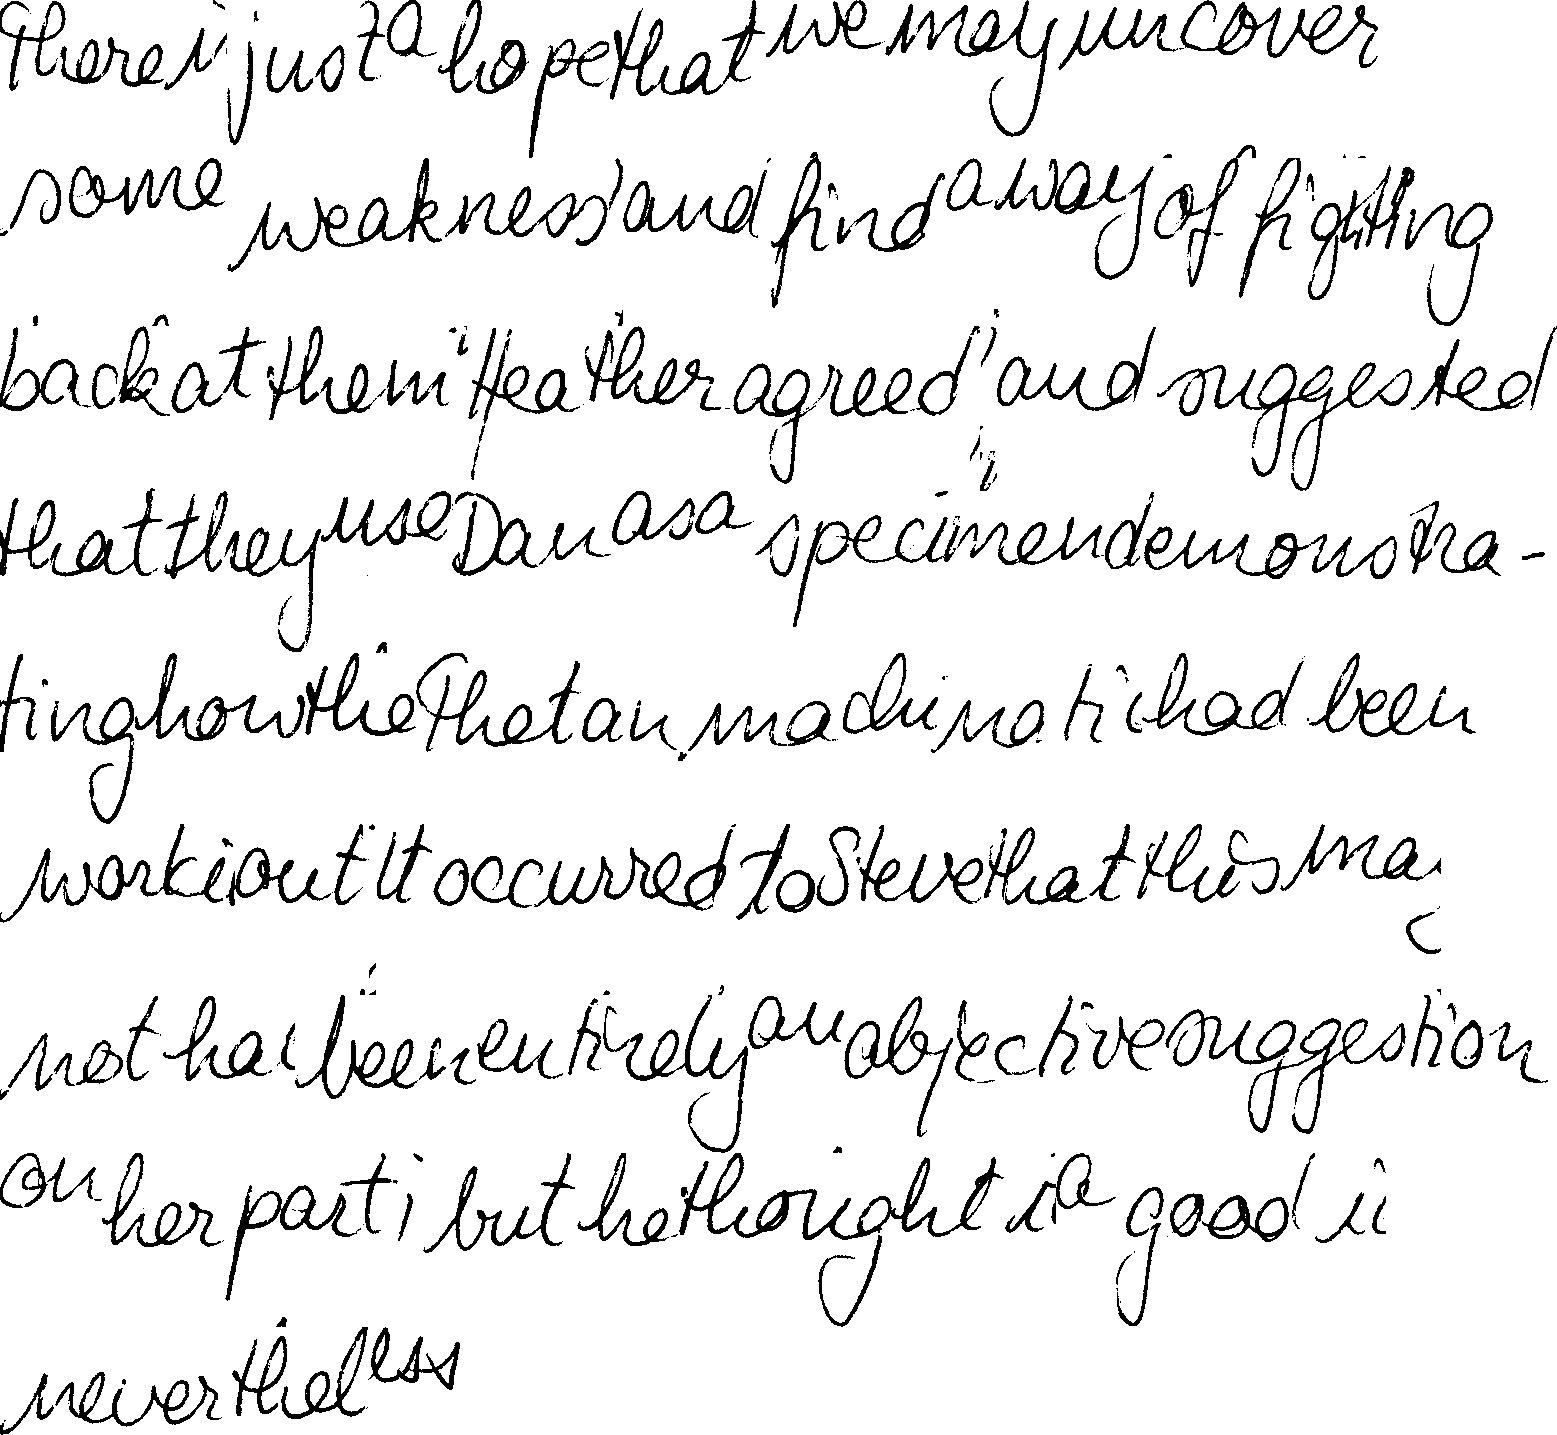 There is just a hope that we may uncover
some weakness and find a way of fighting
back at them" Heather agreed, and suggested
that they use Dan as a specimen demonstra-
ting how the Thetan machinatic had been
work out It occurred to Steve that this may
not ha been entirely an objective suggestion
on her part, but he thought a good
nevertheless